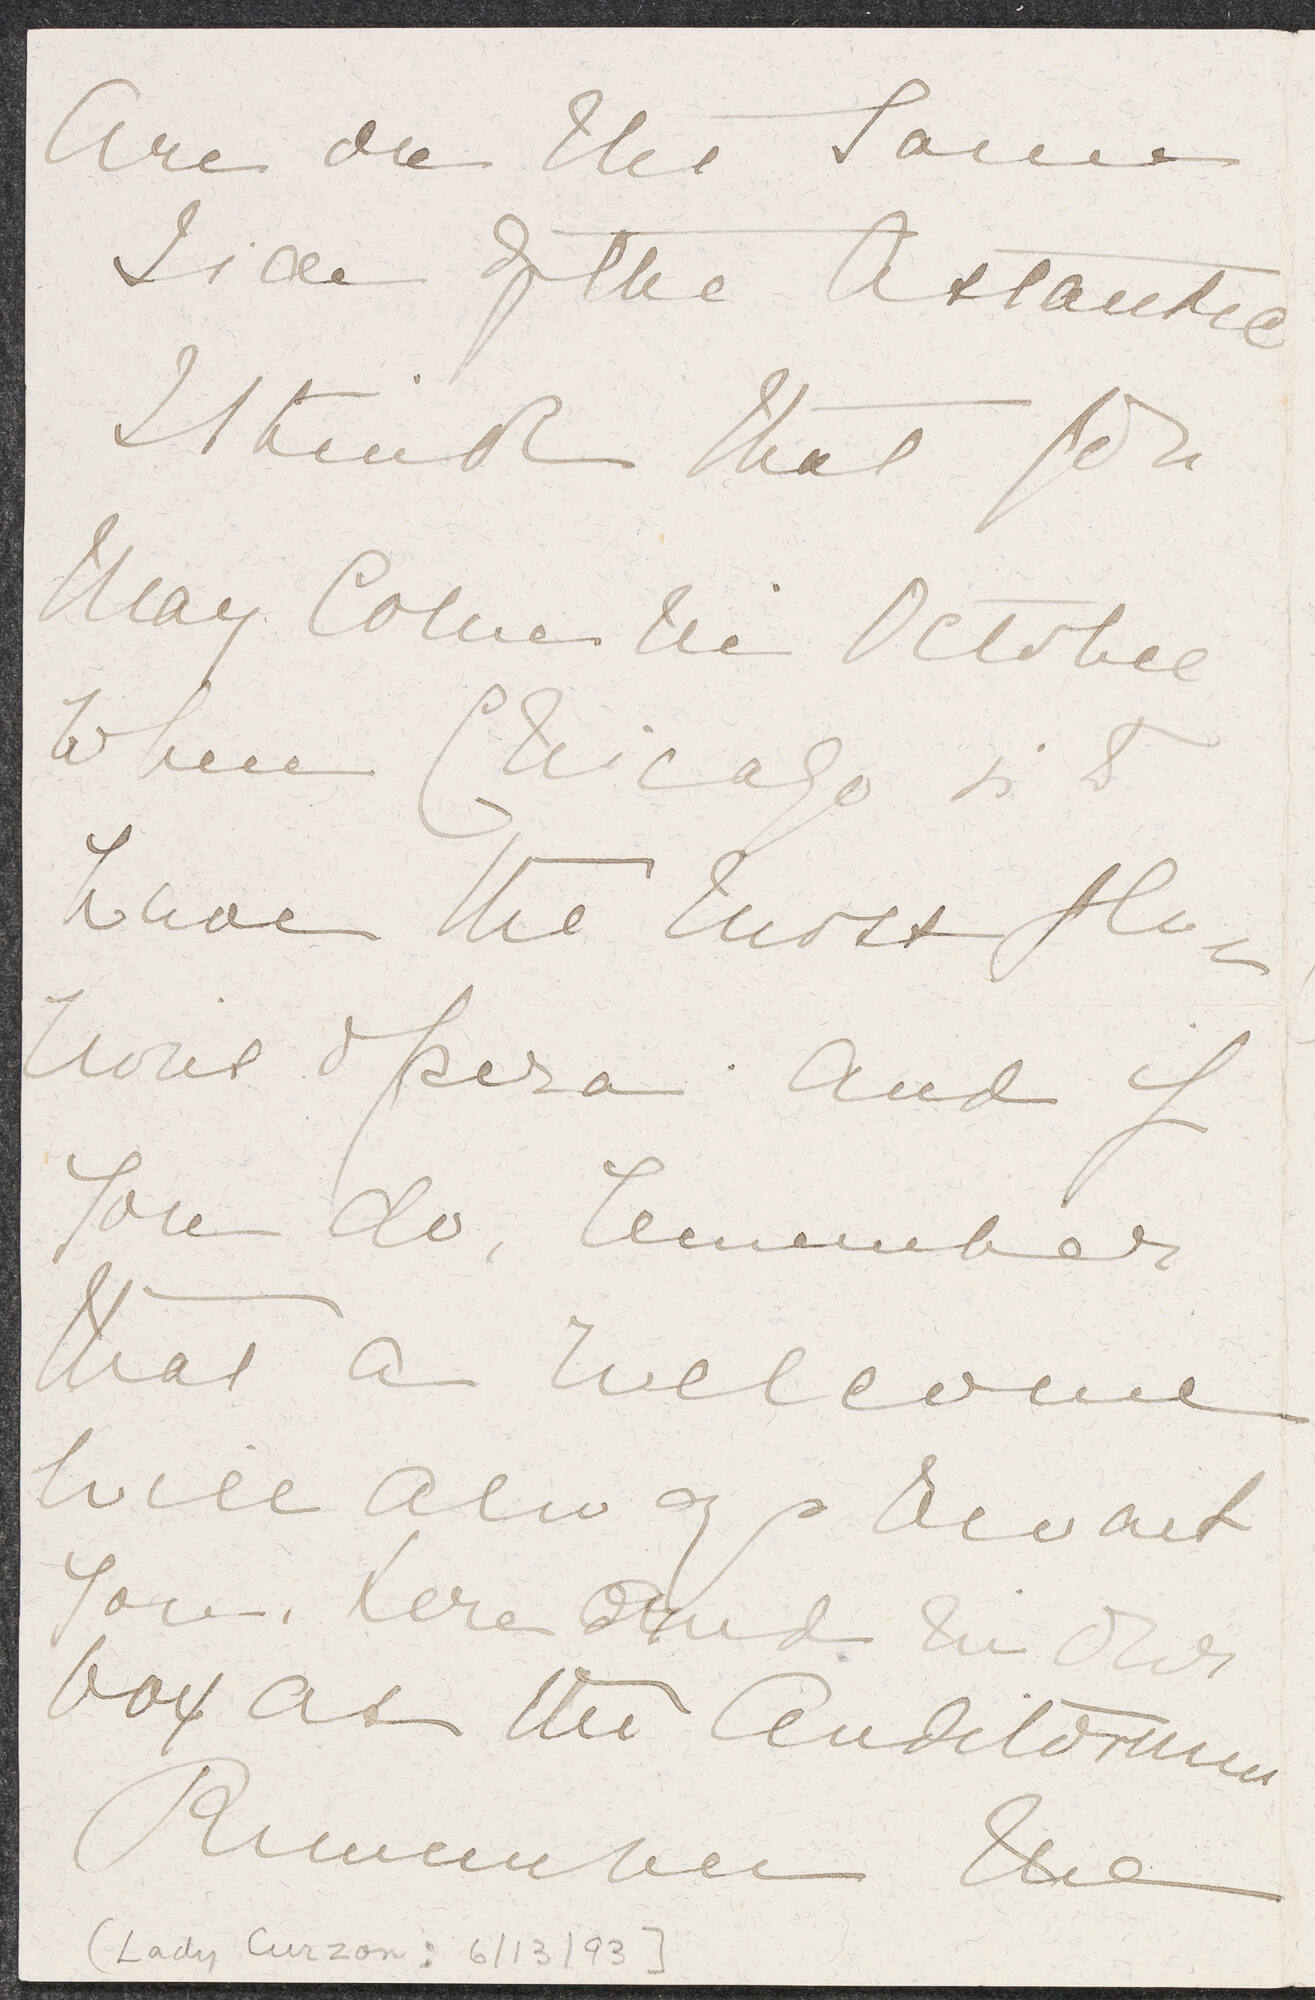 are on the same
side of the Atlantic
I think that you
may come in October
when Chicago is to
have the most glo-
rious opera. and if
you do, remember
that a welcome
will always await
you. here and in our
box at the Auditorium
Remember the
(Lady Curzon: 6/13/93]